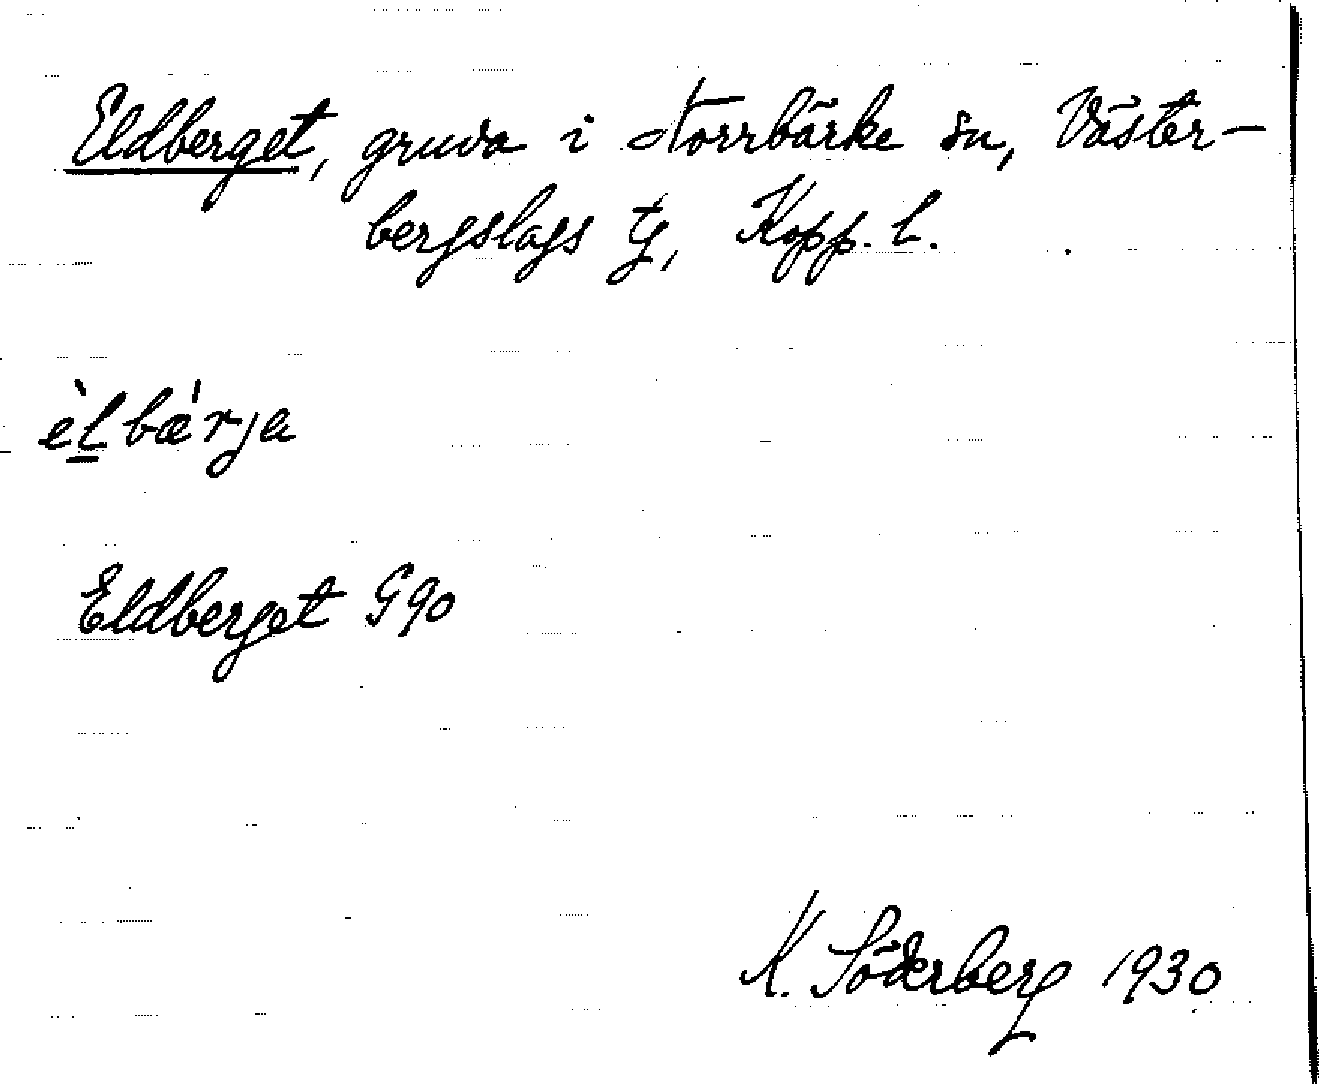 Eldberget, gruva i Norrbärke sn, Väster-
bergslags tg, Kopp. l.
èlbǽrja
Eldberget G90
K. Söderberg 1930